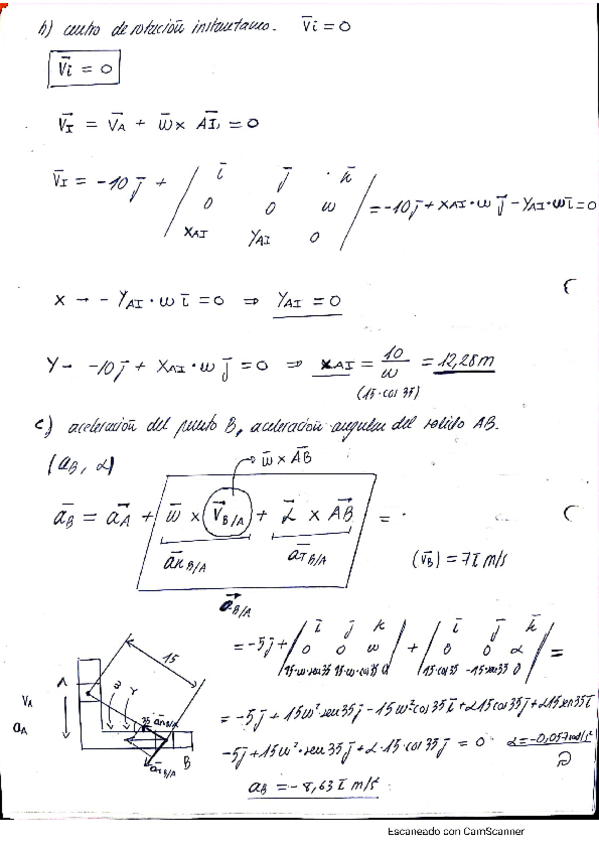 b) centro de rotación instantaneo. V̄i = 0
V̄i = 0
V̄I = V̄A + w̄ × ĀI = 0
V̄I = -10 j̄ + | ī j̄ k̄ | = -10j̄ + XAI·w j̄ - YAI·w ī = 0
0 0 w
XAI YAI 0
X → - YAI·w ī = 0 ⇒ YAI = 0
Y → -10j̄ + XAI·w j̄ = 0 ⇒ XAI = 10/w = 12,28m
(15·cos 35)
c) aceleración del punto B, aceleracion angular del solido AB.
(aB, α) w̄ × AB
aB = aA + w̄ × (V̄B/A) + α × AB = ·
an B/A aT B/A (V̄B) = 7ī m/s
aB/A
= -5j̄ + | ī j̄ k̄ | + | ī j̄ k̄ | =
0 0 w 0 0 α
15·w·sen35 15·w·cos35 0 15·cos35 -15·sen35 0
= -5j̄ + 15w²·sen35j̄ - 15w²·cos35ī + α15cos35j̄ + α15sen35ī
-5j̄ + 15w²·sen35j̄ + α·15·cos35j̄ = 0 α = -0,057rad/s²
aB = -8,63ī m/s²
15
A
VA
aA
35
an B/A
aT B/A
B
Escaneado con CamScanner